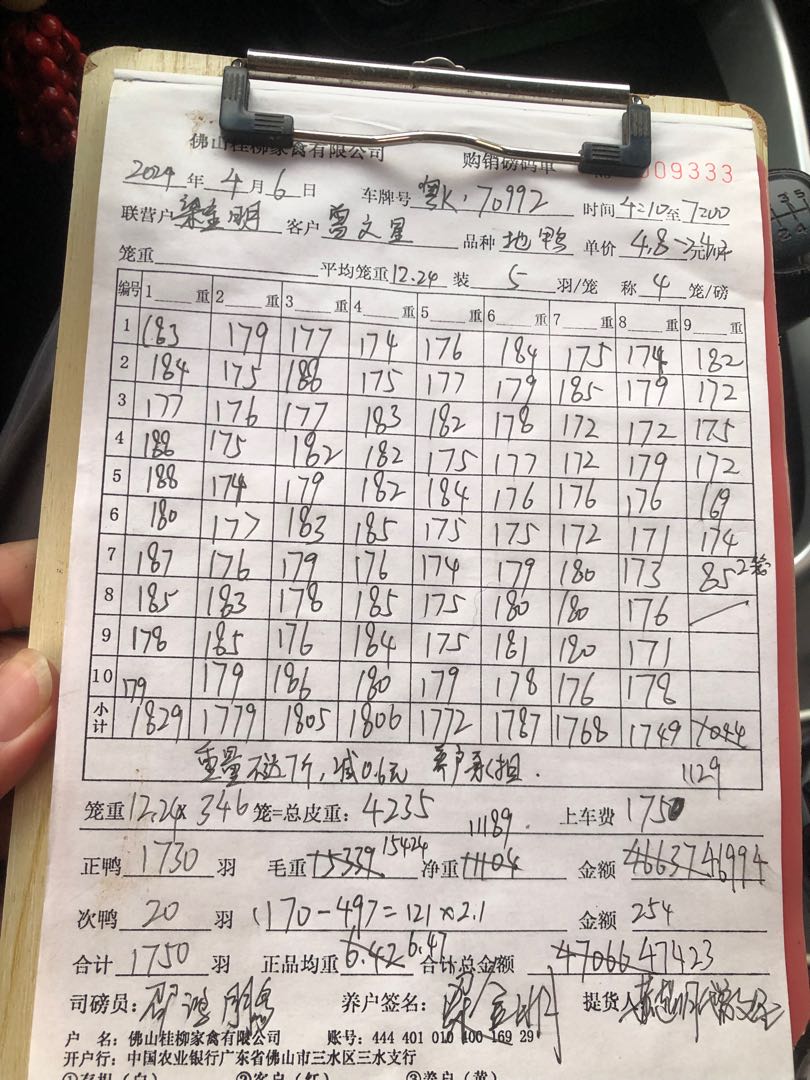 佛山桂柳家禽有限公司 购销磅码单 009333
2024年4月6日 车牌号 粤K·70992 时间 4:10至7:00
联营户 梁金明 客户 曾文星 品种 地鸭 单价 4.8
笼重 平均笼重12.24 装 5 羽/笼 称 4 笼/磅
编号 1 重 2 重 3 重 4 重 5 重 6 重 7 重 8 重 9 重
1 183 179 177 174 176 184 175 174 182
2 184 175 188 175 177 179 185 179 172
3 177 176 177 183 182 178 172 172 175
4 188 175 182 182 175 177 172 179 172
5 188 174 179 182 184 176 176 176 169
6 180 177 183 185 175 175 172 171 174
7 187 176 179 176 174 179 180 173 85 2笼
8 185 183 178 185 175 180 180 176
9 178 185 176 184 175 181 180 171
10 179 179 186 180 179 178 176 178
小计 1829 1779 1805 1806 1772 1787 1768 1749 1044
重量不达7斤,减0.6元 养户承担. 1129
笼重12.24×346笼=总皮重:4235 上车费 1750
正鸭 1730 羽 毛重 15339 15424 净重 11104 11189 金额 46637 46994
次鸭 20 羽 (170-49)=121×2.1 金额 254
合计 1750 羽 正品均重 6.42 6.47 合计总金额 47066 47423
司磅员: 养户签名: 梁金明 提货人
户 名:佛山桂柳家禽有限公司 账号:444 401 010 400 169 29
开户行:中国农业银行广东省佛山市三水区三水支行
①存根(白) ②客户(红) ③养户(黄)